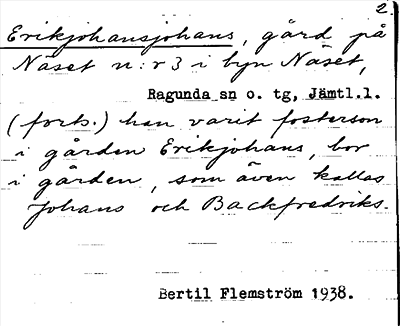 2.
Erikjohansjohans, gård på
Näset n:r 3 i byn Näset,
Ragunda sn o. tg, Jämtl.l.
(forts.) han varit fosterson
i gården Erikjohans, bor
i gården, som även kallas
Johans och Backfredriks.
Bertil Flemström 1938.